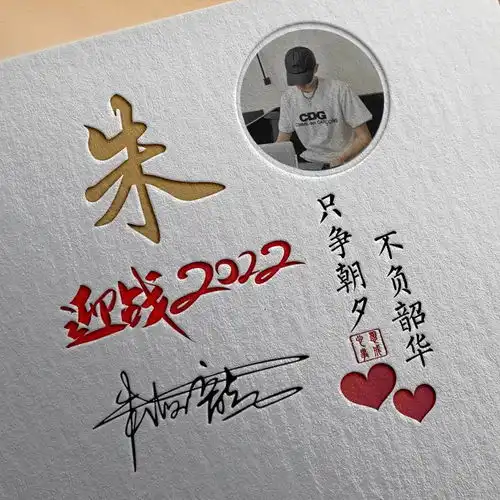 朱
CDG
COMME des GARÇONS
迎战2022
只争朝夕
不负韶华